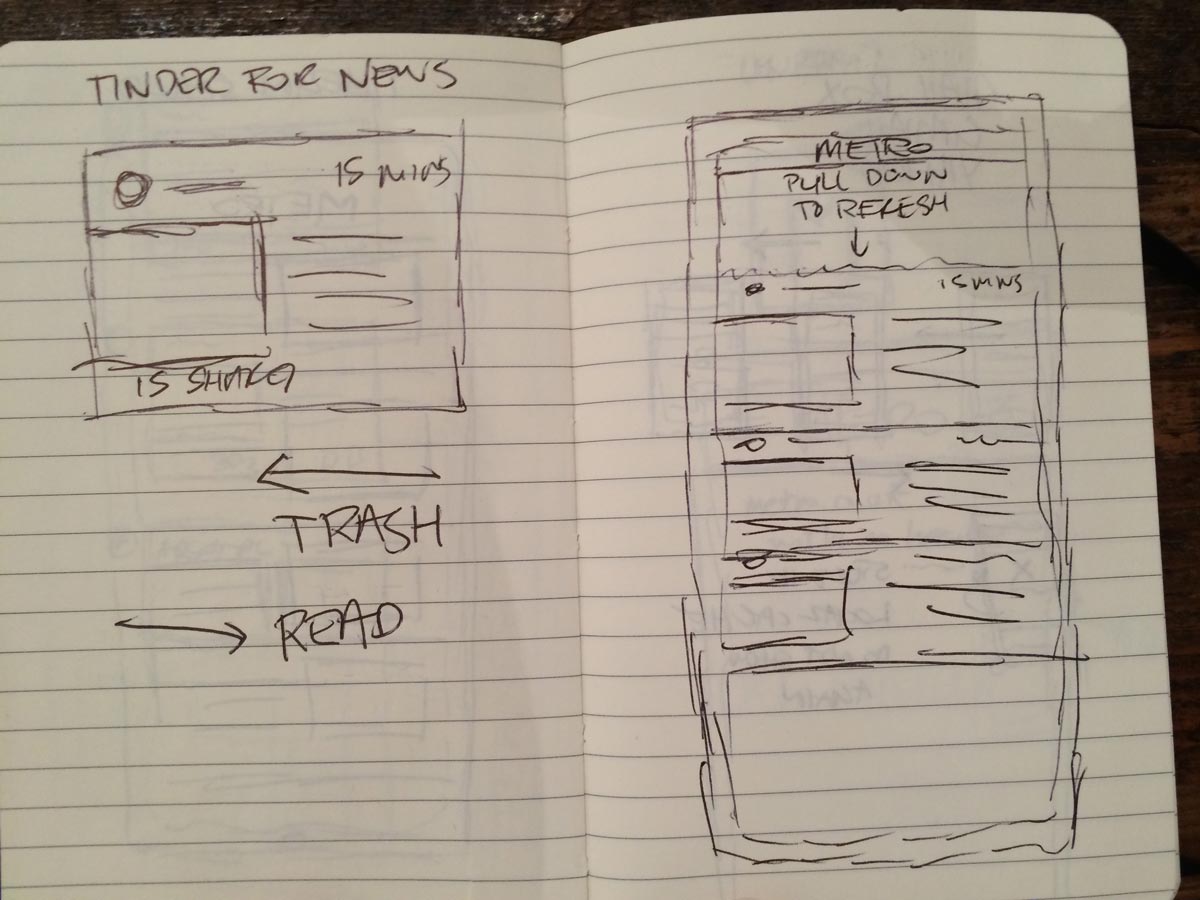 TINDER FOR NEWS
15 MINS
15 SHARES
TRASH
READ
METRO
PULL DOWN
TO REFESH
15 MINS